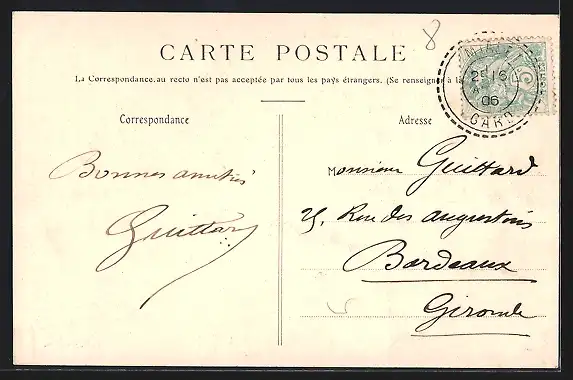 8
CARTE POSTALE
La Correspondance au recto n'est pas acceptée par tous les pays étrangers. (Se renseigner à la
MIALET
25 16
06
GARD
Correspondance
Adresse
Bonnes amitiés
Guittard
Monsieur Guittard
25, Rue des Augustins
Bordeaux
Gironde